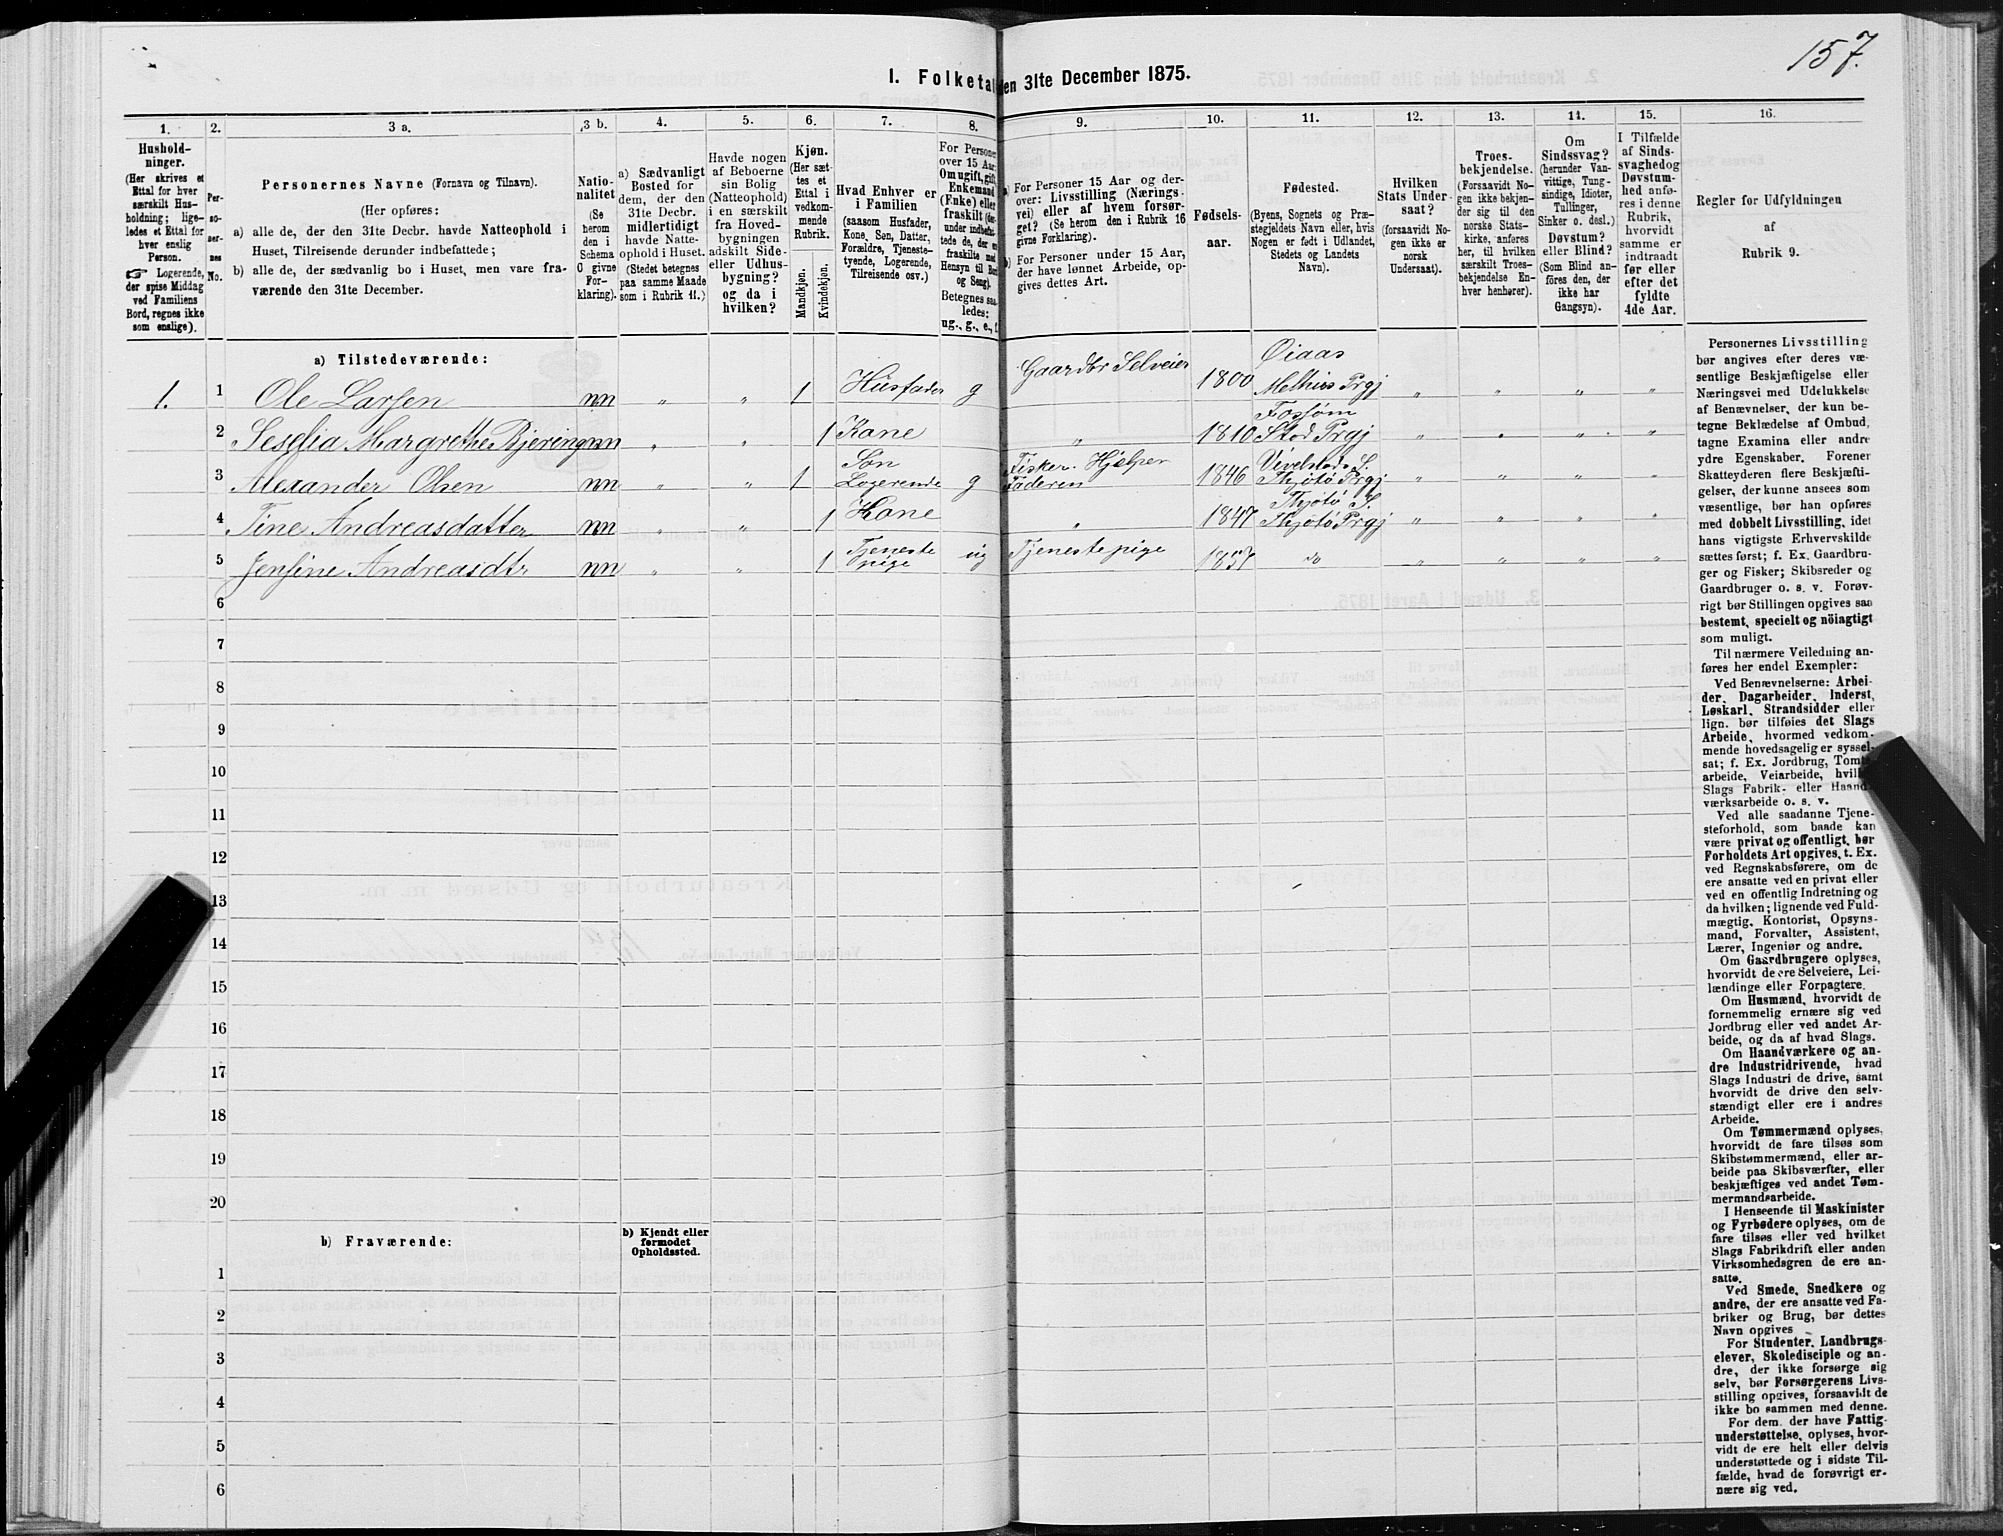 157.
I. Folketal den 31te December 1875.
1.
Hushold-
ninger.
(Her skrives et
Ettal for hver
særskilt Hus-
holdning; lige-
ledes et Ettal for
hver enslig
Person.
☞ Logerende,
der spise Middag
ved Familiens
Bord, regnes ikke
som enslige).
2.
Per-
so-
ner-
nes
No.
3 a.
Personernes Navne (Fornavn og Tilnavn).
(Her opføres:
a) alle de, der den 31te Decbr. havde Natteophold i
Huset, Tilreisende derunder indbefattede;
b) alle de, der sædvanlig bo i Huset, men vare fra-
værende den 31te December.
3 b.
Natio-
nalitet
(Se
herom
den i
Schema
C givne
For-
klaring).
4.
a) Sædvanligt
Bosted for
dem, der den
31te Decbr.
midlertidigt
havde Natte-
ophold i Huset.
(Stedet betegnes
paa samme Maade
som i Rubrik 11.)
5.
Havde nogen
af Beboerne
sin Bolig
(Natteophold)
i en særskilt
fra Hoved-
bygningen
adskilt Side-
eller Udhus-
bygning?
og da i
hvilken?
6.
Kjøn.
(Her sæt-
tes et
Ettal i
vedkom-
mende
Rubrik.
Mandkjøn.
Kvindekjøn.
7.
Hvad Enhver er
i Familien
(saasom Husfader,
Kone, Søn, Datter,
Forældre, Tjeneste-
tyende, Logerende,
Tilreisende osv.)
8.
For Personer
over 15 Aar:
Om ugift, gift,
Enkemand
(Enke) eller
fraskilt (der-
under indbefat-
tede de, der ere
fraskilte med
Hensyn til Bord
og Seng).
Betegnes saa-
ledes:
ug., g., e., f.
9.
a) For Personer 15 Aar og der-
over: Livsstilling (Nærings-
vei) eller af hvem forsør-
get? (Se herom den i Rubrik 16
givne Forklaring).
b) For Personer under 15 Aar,
der have lønnet Arbeide, op-
gives dettes Art.
10.
Fødsels-
aar.
11.
Fødested.
(Byens, Sognets og Præ-
stegjeldets Navn eller, hvis
Nogen er født i Udlandet,
Stedets og Landets
Navn).
12.
Hvilken
Stats Under-
saat?
(forsaavidt No-
gen ikke er
norsk
Undersaat).
13.
Troes-
bekjendelse.
(Forsaavidt No-
gen ikke bekjen-
der sig til den
norske Stats-
kirke, anføres
her, til hvilken
særskilt Troes-
bekjendelse En-
hver henhører).
14.
Om
Sindssvag?
(herunder Van-
vittige, Tung-
sindige, Idioter,
Tullinger,
Sinker o. desl.)
Døvstum?
eller Blind?
(Som Blind an-
føres den, der
ikke har
Gangsyn).
15.
I Tilfælde
af Sinds-
svaghed og
Døvstum-
hed anfø-
res i denne
Rubrik,
hvorvidt
samme er
indtraadt
før eller
efter det
fyldte
4de Aar.
16.
Regler for Udfyldningen
af
Rubrik 9.
a) Tilstedeværende:
1. 1 Ole Larsen nn „ „ 1 Husfader g Gaardbr Selveier 1800 Øiaas Melhus Prgj „ „ „ „
2 Seselia Margrethe Bjering nn „ „ 1 Kone „ 1810 Fossøm Stod Prgj „ „ „ „
3 Alexander Olsen nn „ „ 1 Søn Logerende g Fisker. Hjelper Faderen 1846 Vivelstads S. Thjøtø Prgj „ „ „ „
4 Tine Andreasdatter nn „ „ 1 Kone „ 1847 Thjøtø S. Thjøtø Prgj „ „ „ „
5 Jensine Andreasdtr nn „ „ 1 Tjeneste pige ug Tjenestepige 1857 do „ „ „ „
6
7
8
9
10
11
12
13
14
15
16
17
18
19
20
b) Fraværende:
b) Kjendt eller
formodet
Opholdssted.
1
2
3
4
5
6
Personernes Livsstilling
bør angives efter deres væ-
sentlige Beskjæftigelse eller
Næringsvei med Udelukkelse
af Benævnelser, der kun be-
tegne Beklædelse af Ombud,
tagne Examina eller andre
ydre Egenskaber. Forener
Skatteyderen flere Beskjæfti-
gelser, der kunne ansees som
væsentlige, bør han opføres
med dobbelt Livsstilling, idet
hans vigtigste Erhvervskilde
sættes først; f. Ex. Gaardbru-
ger og Fisker; Skibsreder og
Gaardbruger o. s. v. Forøv-
rigt bør Stillingen opgives saa
bestemt, specielt og nöiagtigt
som muligt.
Til nærmere Veiledning an-
føres her endel Exempler:
Ved Benævnelserne: Arbei-
der, Dagarbeider, Inderst,
Løskarl, Strandsidder eller
lign. bør tilføies det Slags
Arbeide, hvormed vedkom-
mende hovedsagelig er syssel-
sat; f. Ex. Jordbrug, Tomte-
arbeide, Veiarbeide, hvilket
Slags Fabrik- eller Haand-
værksarbeide o. s. v.
Ved alle saadanne Tjene-
steforhold, som baade kan
være privat og offentligt, bør
Forholdets Art opgives, t. Ex.
ved Regnskabsførere, om de
ere ansatte ved en privat eller
ved en offentlig Indretning og
da hvilken; lignende ved Fuld-
mægtig, Kontorist, Opsyns-
mand, Forvalter, Assistent,
Lærer, Ingeniør og andre.
Om Gaardbrugere oplyses,
hvorvidt de ere Selveiere, Lei-
lændinge eller Forpagtere.
Om Husmænd, hvorvidt de
fornemmelig ernære sig ved
Jordbrug eller ved andet Ar-
beide, og da af hvad Slags.
Om Haandværkere og an-
dre Industridrivende, hvad
Slags Industri de drive, samt
hvorvidt de drive den selv-
stændigt eller ere i andres
Arbeide.
Om Tømmermænd oplyses,
hvorvidt de fare tilsøs som
Skibstømmermænd, eller ar-
beide paa Skibsværfter, eller
beskjæftiges ved andet Tøm-
mermandsarbeide.
I Henseende til Maskinister
og Fyrbødere oplyses, om de
fare tilsøs eller ved hvilket
Slags Fabrikdrift eller anden
Virksomhedsgren de ere an-
satte.
Ved Smede, Snedkere og
andre, der ere ansatte ved Fa-
briker og Brug, bør dettes
Navn opgives
For Studenter, Landbrugs-
elever, Skoledisciple og an-
dre, der ikke forsørge sig
selv, bør Forsørgerens Livs-
stilling opgives, forsaavidt de
ikke bo sammen med denne.
For dem, der have Fattig-
understøttelse, oplyses, hvor-
vidt de ere helt eller delvis
understøttede og i sidste Til-
fælde, hvad de forøvrigt er-
nære sig ved.